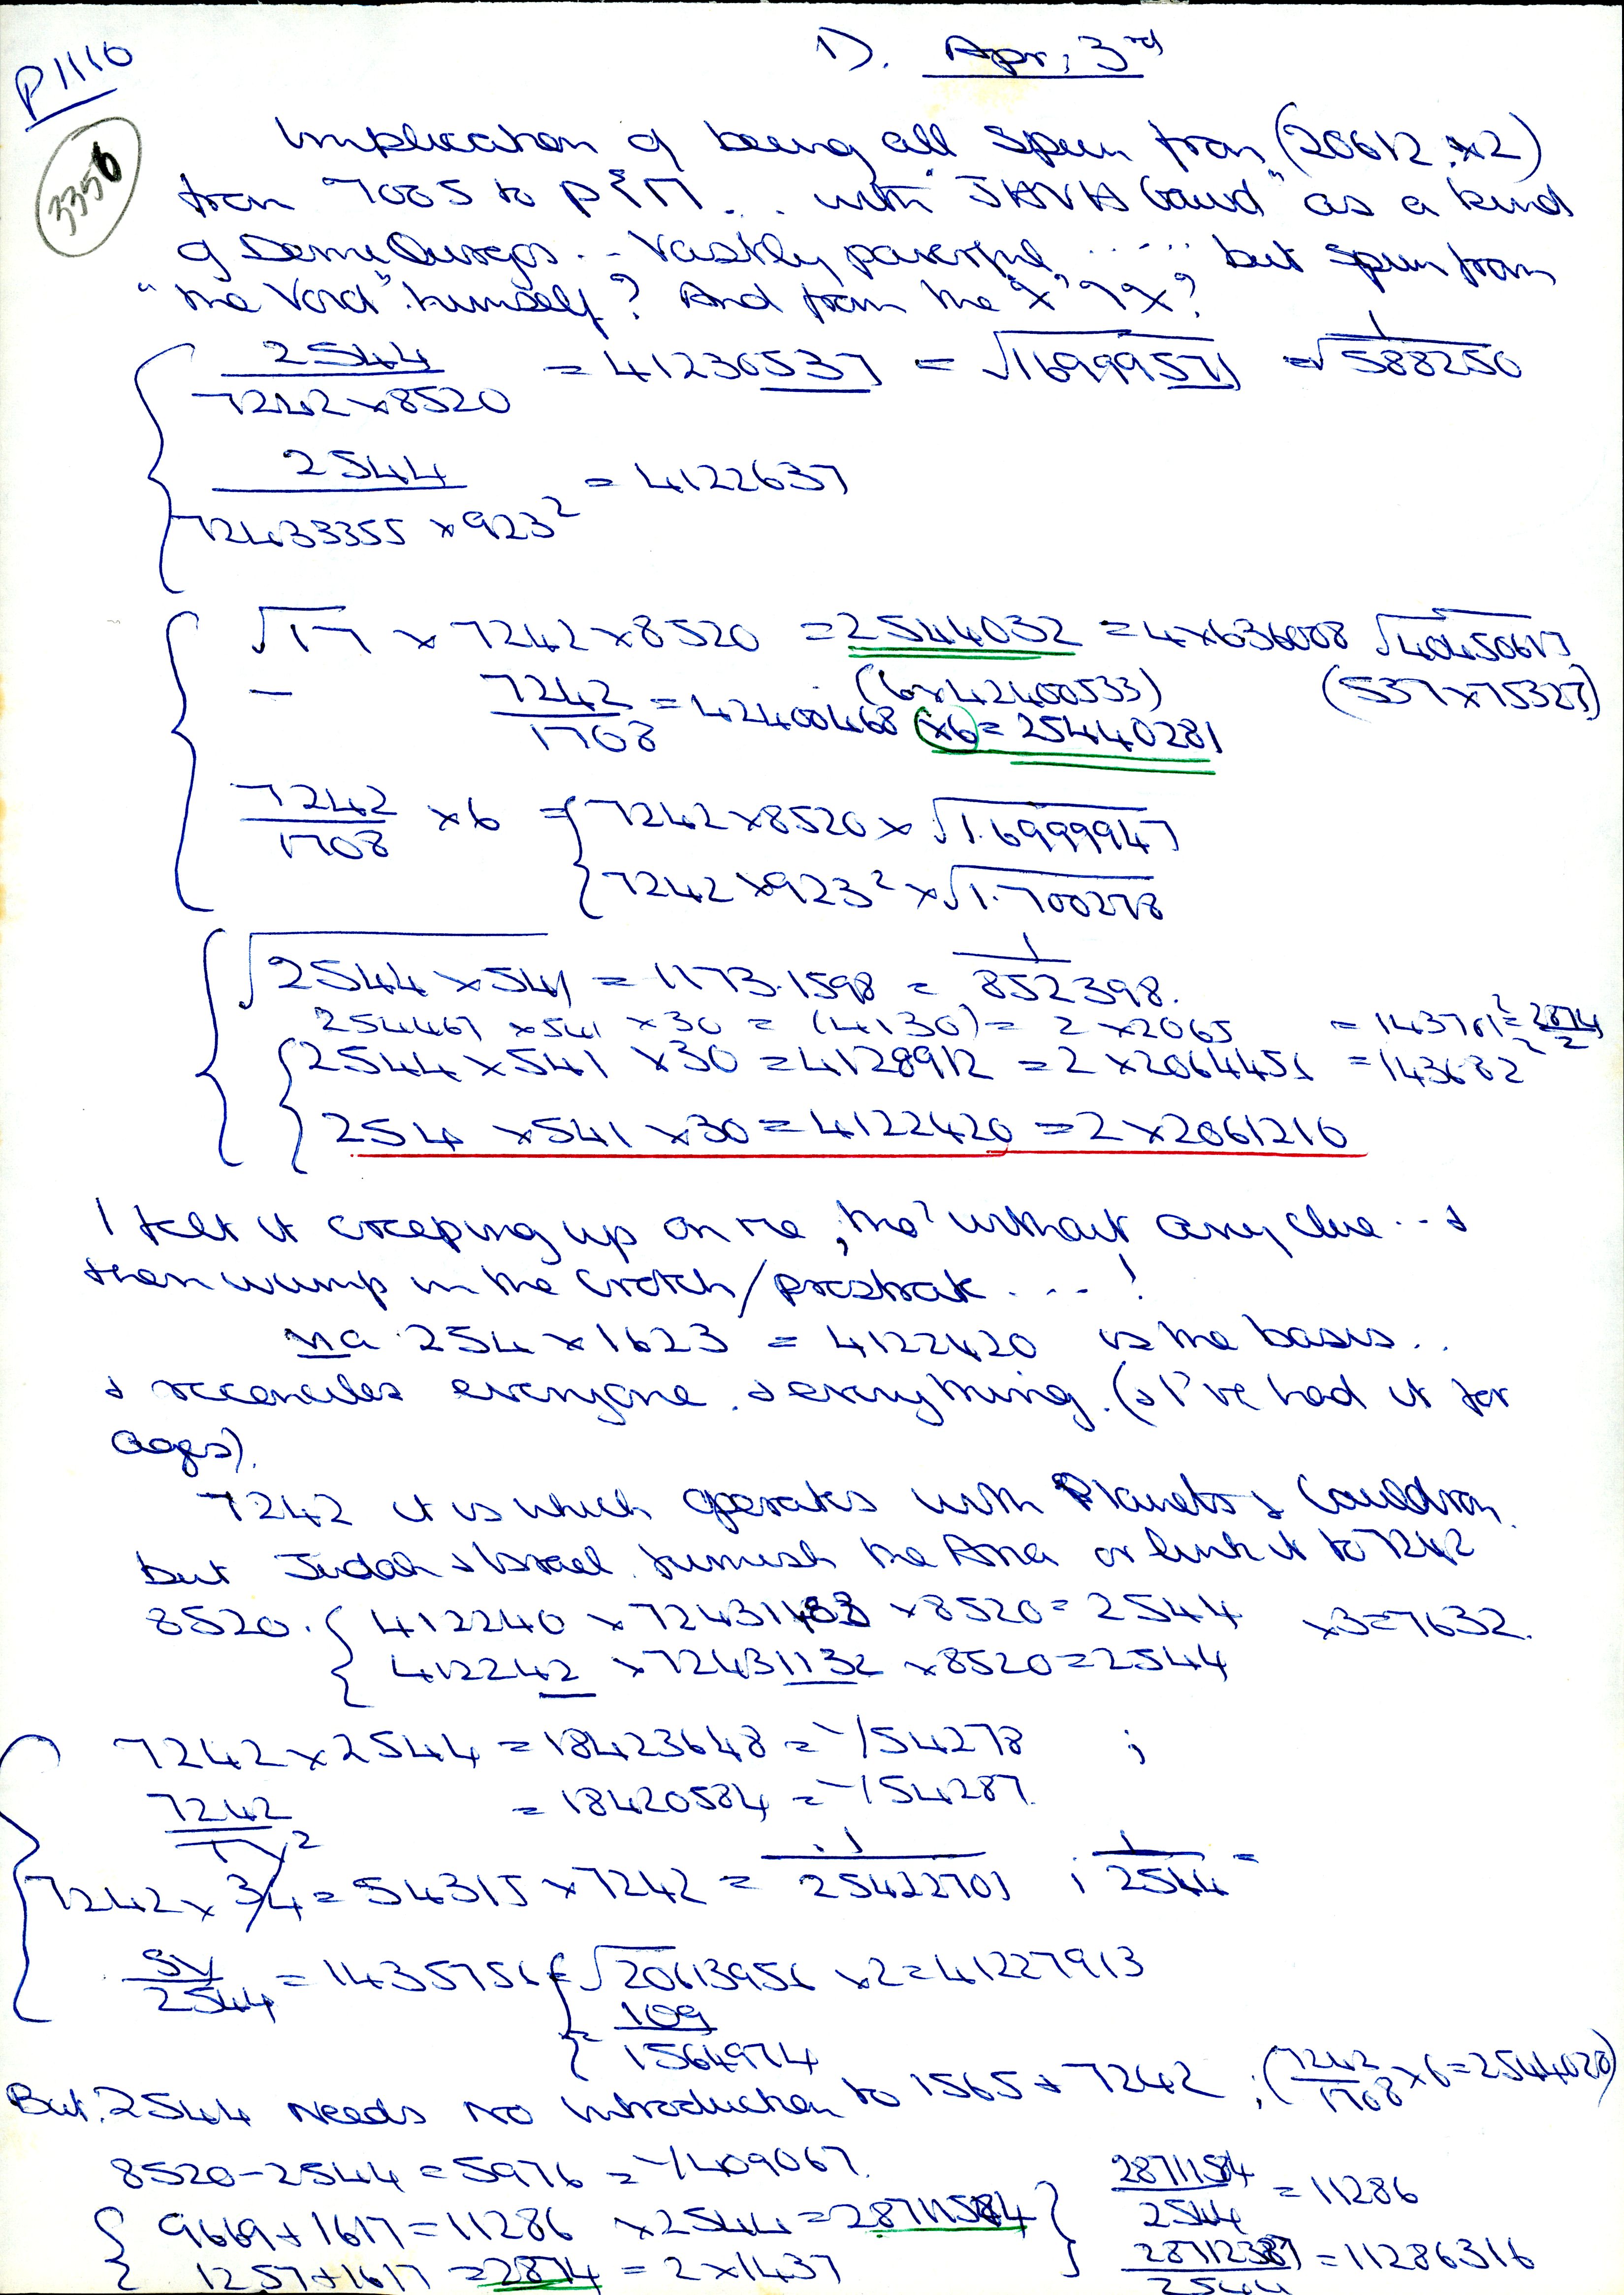 P1110
1). Apr, 3rd
3356
Implication of being all spun from (20612 x2)
from 7005 to P . . with "JAVA band" as a kind
of Demi . . Vastly powerful . . . . . but spun from
"the Void" himself? And from the "X" 7X?
2544 / 7242 x 8520 = 41230537 = √16999571 = √1/588250
2544 / 72433355 x 923² = 4122637
√17 x 7242 x 8520 = 2544032 = 4x636008 √40450617
— 7242 / 1708 = 42400468 (x6) = 25440281
(6x42400533) (537x75327)
7242 / 1708 x 6 = { 7242 x 8520 x √1.6999947
{ 7242 x 923² x √1.700278
√2544 x 541 = 1173.1598 = 1/852398.
254467 x541 x30 = (4130) = 2 x2065 = 143701² = 2874/2
2544 x 541 x 30 = 4128912 = 2 x 2064456 = 143682²
254 x 541 x 30 = 4122420 = 2 x 2061210
I felt it creeping up on me, tho' without any clue . . &
then wump in the crotch/prostrate . . . . !
via 254 x 1623 = 4122420 is the basis . .
& reconciles everyone & everything. (& I've had it for
ages).
7242 it is which operates with Planets & Cauldron
but Judah & Israel furnish the Area or link it to 7242
8520. { 412240 x 72431183 x 8520 = 2544 x3=7632.
{ 412242 x 72431132 x 8520 = 2544
7242 x 2544 = 18423648 = -/54278 ;
7242 / ² = 18420584 = -/54287
7242 x 3/4 = 54315 x 7242 = 1/25422701 ; 1/2544 =
54/2544 = 1435756 { = √20613956 x2 = 41227913
{ = 109/1564974
But. 2544 needs no introduction to 1565 & 7242 ; (7242/1708 x 6 = 2544020)
8520 - 2544 = 5976 = -/409067.
{ 9669 + 1617 = 11286 x 2544 = 28711584 } 28711584/2544 = 11286
{ 1257 + 1617 = 2874 = 2 x 1437 } 28712387/2544 = 11286316